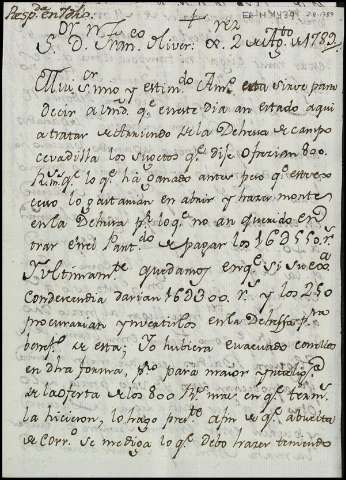 Resp.da en 7 dho.
S. D. Fran.co Oliver: Xe. 2 de Ag.to de 1789.
Mui S.r mio y estim.do Am.o esta sirve para
decir a Vmd. q.e en este dia an estado aqui
a tratar de la Dehesa de campo
cevadilla los sugetos q.e dije ofrecian 800.
q.e lo q.e ha ganado antes pero q.e este
lo gastarian en abrir y hazer monte
en la Dehesa p.r lo q.e no an querido en
trar en el de pagar los 16D550 r.s
Y ultimam.te quedamos en q.e si su ex.a
Condecendia darian 16D300 r.s y los 250
procurarian ynvertirlos en la Dehessa p.ra
benef.o de esta; Yo hubiera evacuado con ellos
en dha forma, p.ro para maior
de la oferta de los 800 R.s mas en q.e term.s
la hicieron, lo hago pres.te a fin de q.e a buelta
de Corr.o se me diga lo q.e debo hazer teniendo